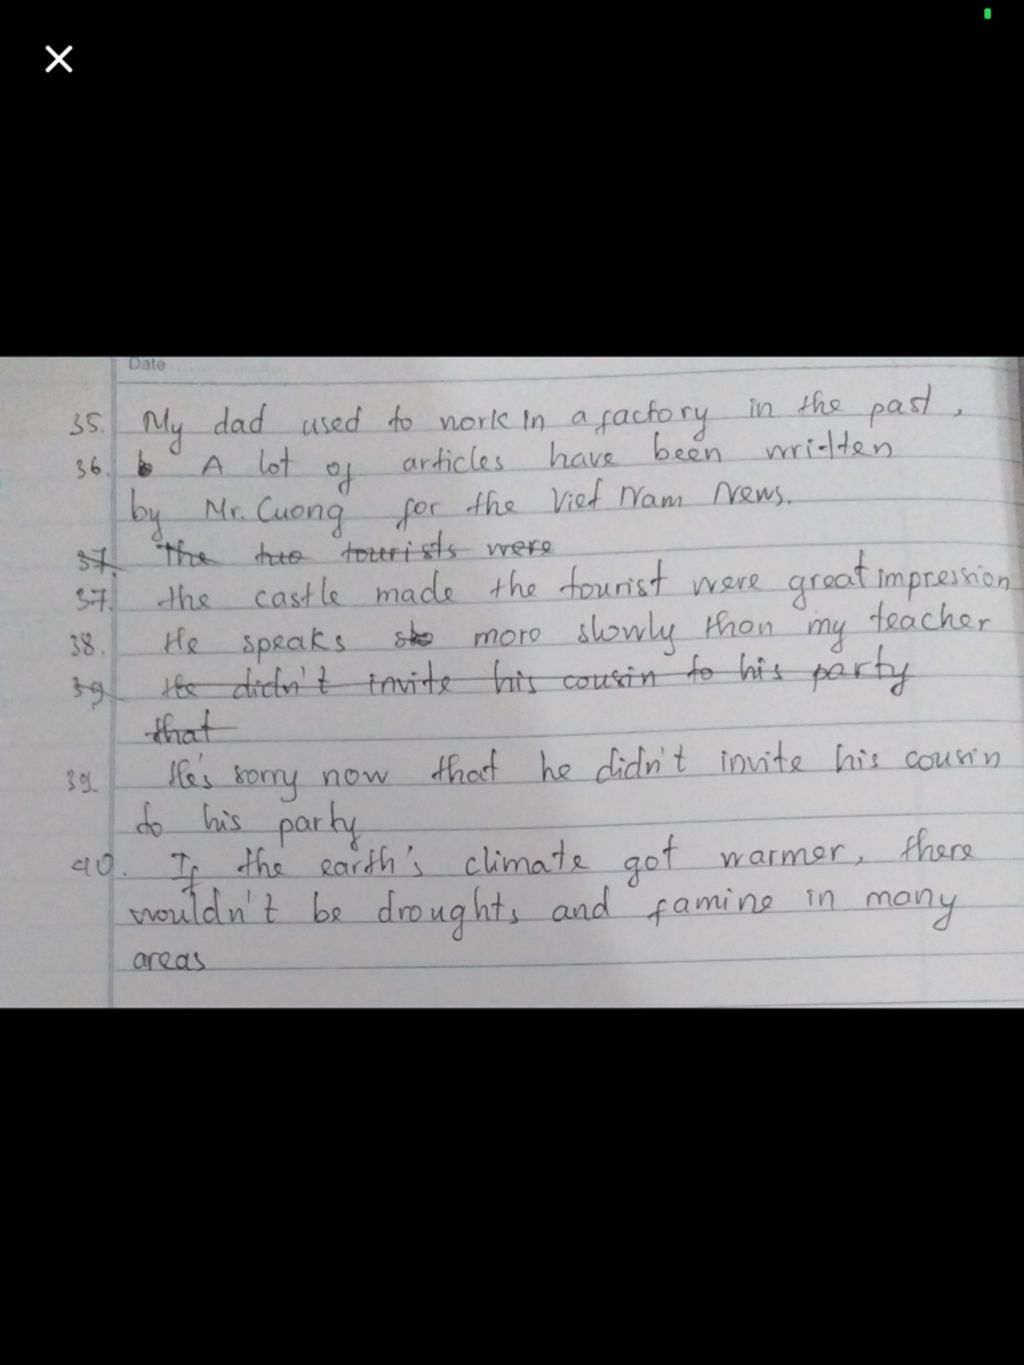 Date
35. My dad used to work in a factory in the past.
36. A lot of articles have been written
by Mr. Cuong for the Viet Nam News.
37. The two tourists were
37. the castle made the tourist were great impression
38. He speaks slo more slowly than my teacher
39. He didn't invite his cousin to his party
that
39. He's sorry now that he didn't invite his cousin
to his party
40. If the earth's climate got warmer, there
wouldn't be droughts and famine in many
areas